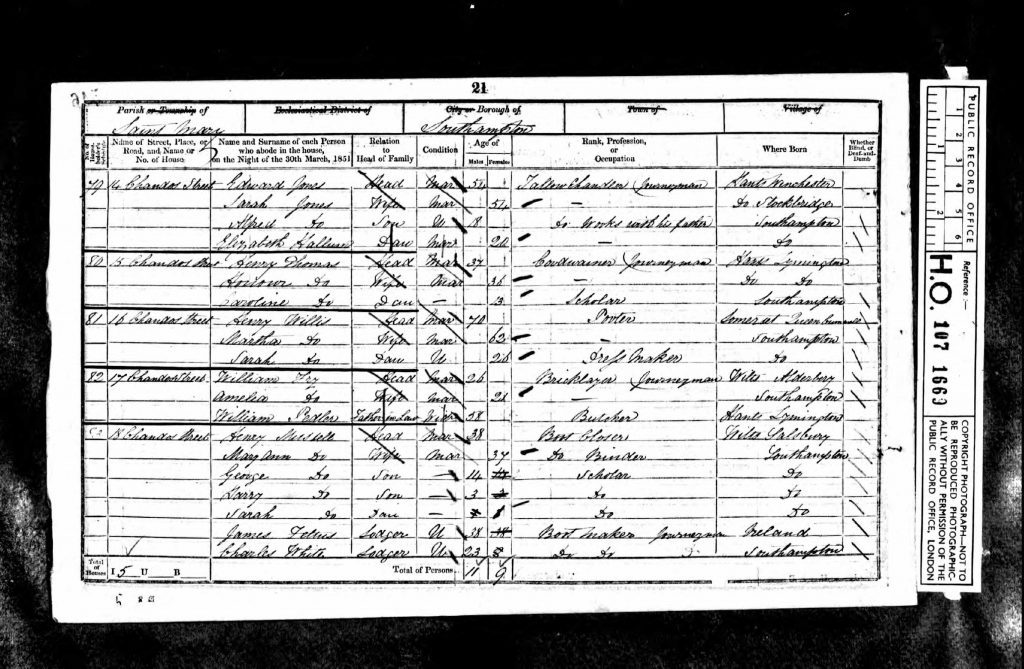 21
Parish or Township of Ecclesiastical District of City or Borough of Town of Village of
Saint Mary Southampton
Name of Street, Place, or Road, and Name or No. of House Name and Surname of each Person who abode in the house, on the Night of the 30th March, 1851 Relation to Head of Family Condition Age of Males Females Rank, Profession, or Occupation Where Born Whether Blind, or Deaf-and-Dumb
79 14 Chandos Street Edward Jones Head Mar Tallow Chandler Journeyman Hants Winchester
Sarah Jones Wife Mar — Do Stockbridge
Alfred Do Son U 18 Do Works with his father Southampton
Elizabeth Dau Mar 20 — Do
80 15 Chandos Street Henry Thomas Head Mar 37 Cordwainer Journeyman Hants Lymington
Do Wife Mar 36 — Do Do
Caroline Do Dau — Scholar Southampton
81 16 Chandos Street Henry Willis Head Mar 70 Somerset
Martha Do Wife Mar 62 — Southampton
Sarah Do Dau U 26 Dress Maker Do
82 17 Chandos Street William Fry Head Mar 26 Bricklayer Journeyman Wilts Alderbury
Amelia Do Wife Mar 21 — Southampton
William Father in Law Widr 58 Butcher Hants Lymington
83 18 Chandos Street Henry Head Mar 38 Boot Closer Wilts Salsbury
Mary Ann Do Wife Mar 37 Do Binder Southampton
George Do Son — 14 Scholar Do
Harry Do Son — 3 Do Do
Sarah Do Dau — Do Do
James Lodger U 38 Boot Maker Journeyman Ireland
Charles White Lodger U 23 Do Do Southampton
Total of Houses I 5 U B Total of Persons 11 9
PUBLIC RECORD OFFICE
1 2 3 4 5 6
1 2
Reference:-
H.O. 107 1669
COPYRIGHT PHOTOGRAPH—NOT TO
BE REPRODUCED PHOTOGRAPHIC-
ALLY WITHOUT PERMISSION OF THE
PUBLIC RECORD OFFICE, LONDON